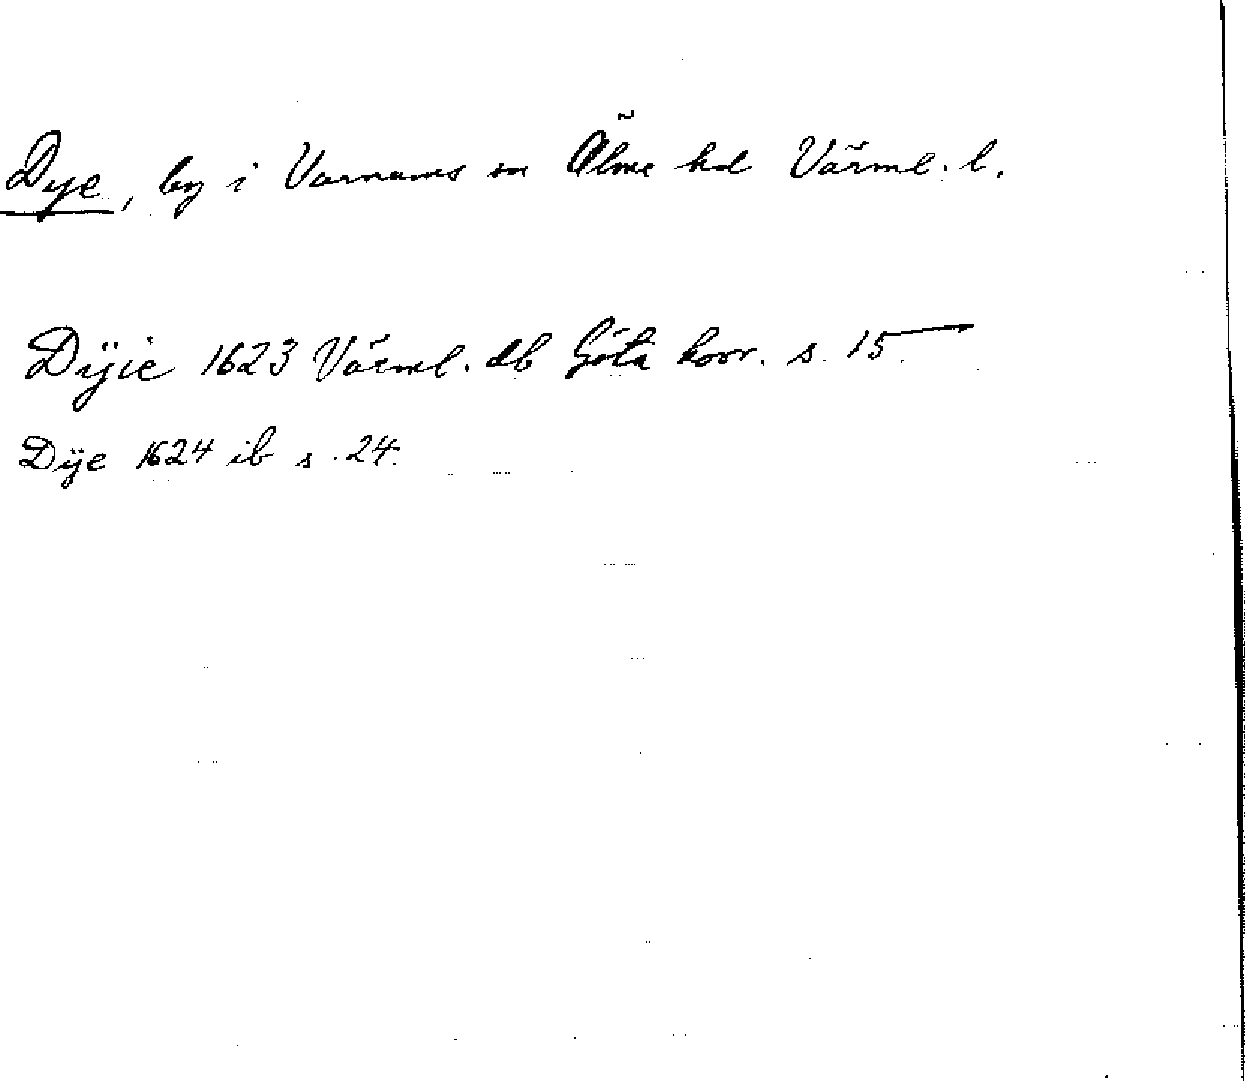 Dye, by i Varnums sn Ölme hd Värml. l.
Dÿie 1623 Värml. db Göta hovr. s. 15.
Dÿe 1624 ib s. 24.